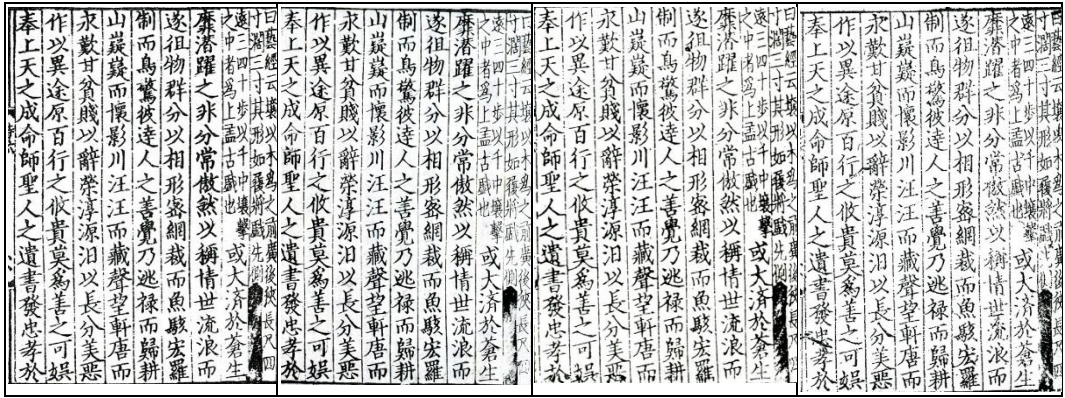 曰藝經云壤以木爲之前廣後狹長尺四
寸闊三寸其形如履將戲先側
遠三四十步以手中壤擊
之中者爲上盖古戲也
或大済於蒼生
靡潜躍之非分常傲然以稱情世流浪而
遂徂物群分以相形宻網裁而魚駭宏羅
制而鳥驚彼逹人之善覺乃逃禄而歸耕
山嶷嶷而懷影川汪汪而藏聲望軒唐而
永歎甘貧賤以辭榮淳源汩以長分美惡
作以異途原百行之攸貴莫爲善之可娱
奉上天之成命師聖人之遺書發忠孝於
曰藝經云壤以木爲之前廣後狹長尺四
寸闊三寸其形如履將戲先側
遠三四十步以手中壤擊
之中者爲上盖古戲也
或大済於蒼生
靡潜躍之非分常傲然以稱情世流浪而
遂徂物群分以相形宻網裁而魚駭宏羅
制而鳥驚彼逹人之善覺乃逃禄而歸耕
山嶷嶷而懷影川汪汪而藏聲望軒唐而
永歎甘貧賤以辭榮淳源汩以長分美惡
作以異途原百行之攸貴莫爲善之可娱
奉上天之成命師聖人之遺書發忠孝於
曰藝經云壤以木爲之前廣後狹長尺四
寸闊三寸其形如履將戲先側
遠三四十步以手中壤擊
之中者爲上盖古戲也
或大済於蒼生
靡潜躍之非分常傲然以稱情世流浪而
遂徂物群分以相形宻網裁而魚駭宏羅
制而鳥驚彼逹人之善覺乃逃禄而歸耕
山嶷嶷而懷影川汪汪而藏聲望軒唐而
永歎甘貧賤以辭榮淳源汩以長分美惡
作以異途原百行之攸貴莫爲善之可娱
奉上天之成命師聖人之遺書發忠孝於
曰藝經云壤以木爲之前廣後狹長尺四
寸闊三寸其形如履將戲先側
遠三四十步以手中壤擊
之中者爲上盖古戲也
或大済於蒼生
靡潜躍之非分常傲然以稱情世流浪而
遂徂物群分以相形宻網裁而魚駭宏羅
制而鳥驚彼逹人之善覺乃逃禄而歸耕
山嶷嶷而懷影川汪汪而藏聲望軒唐而
永歎甘貧賤以辭榮淳源汩以長分美惡
作以異途原百行之攸貴莫爲善之可娱
奉上天之成命師聖人之遺書發忠孝於